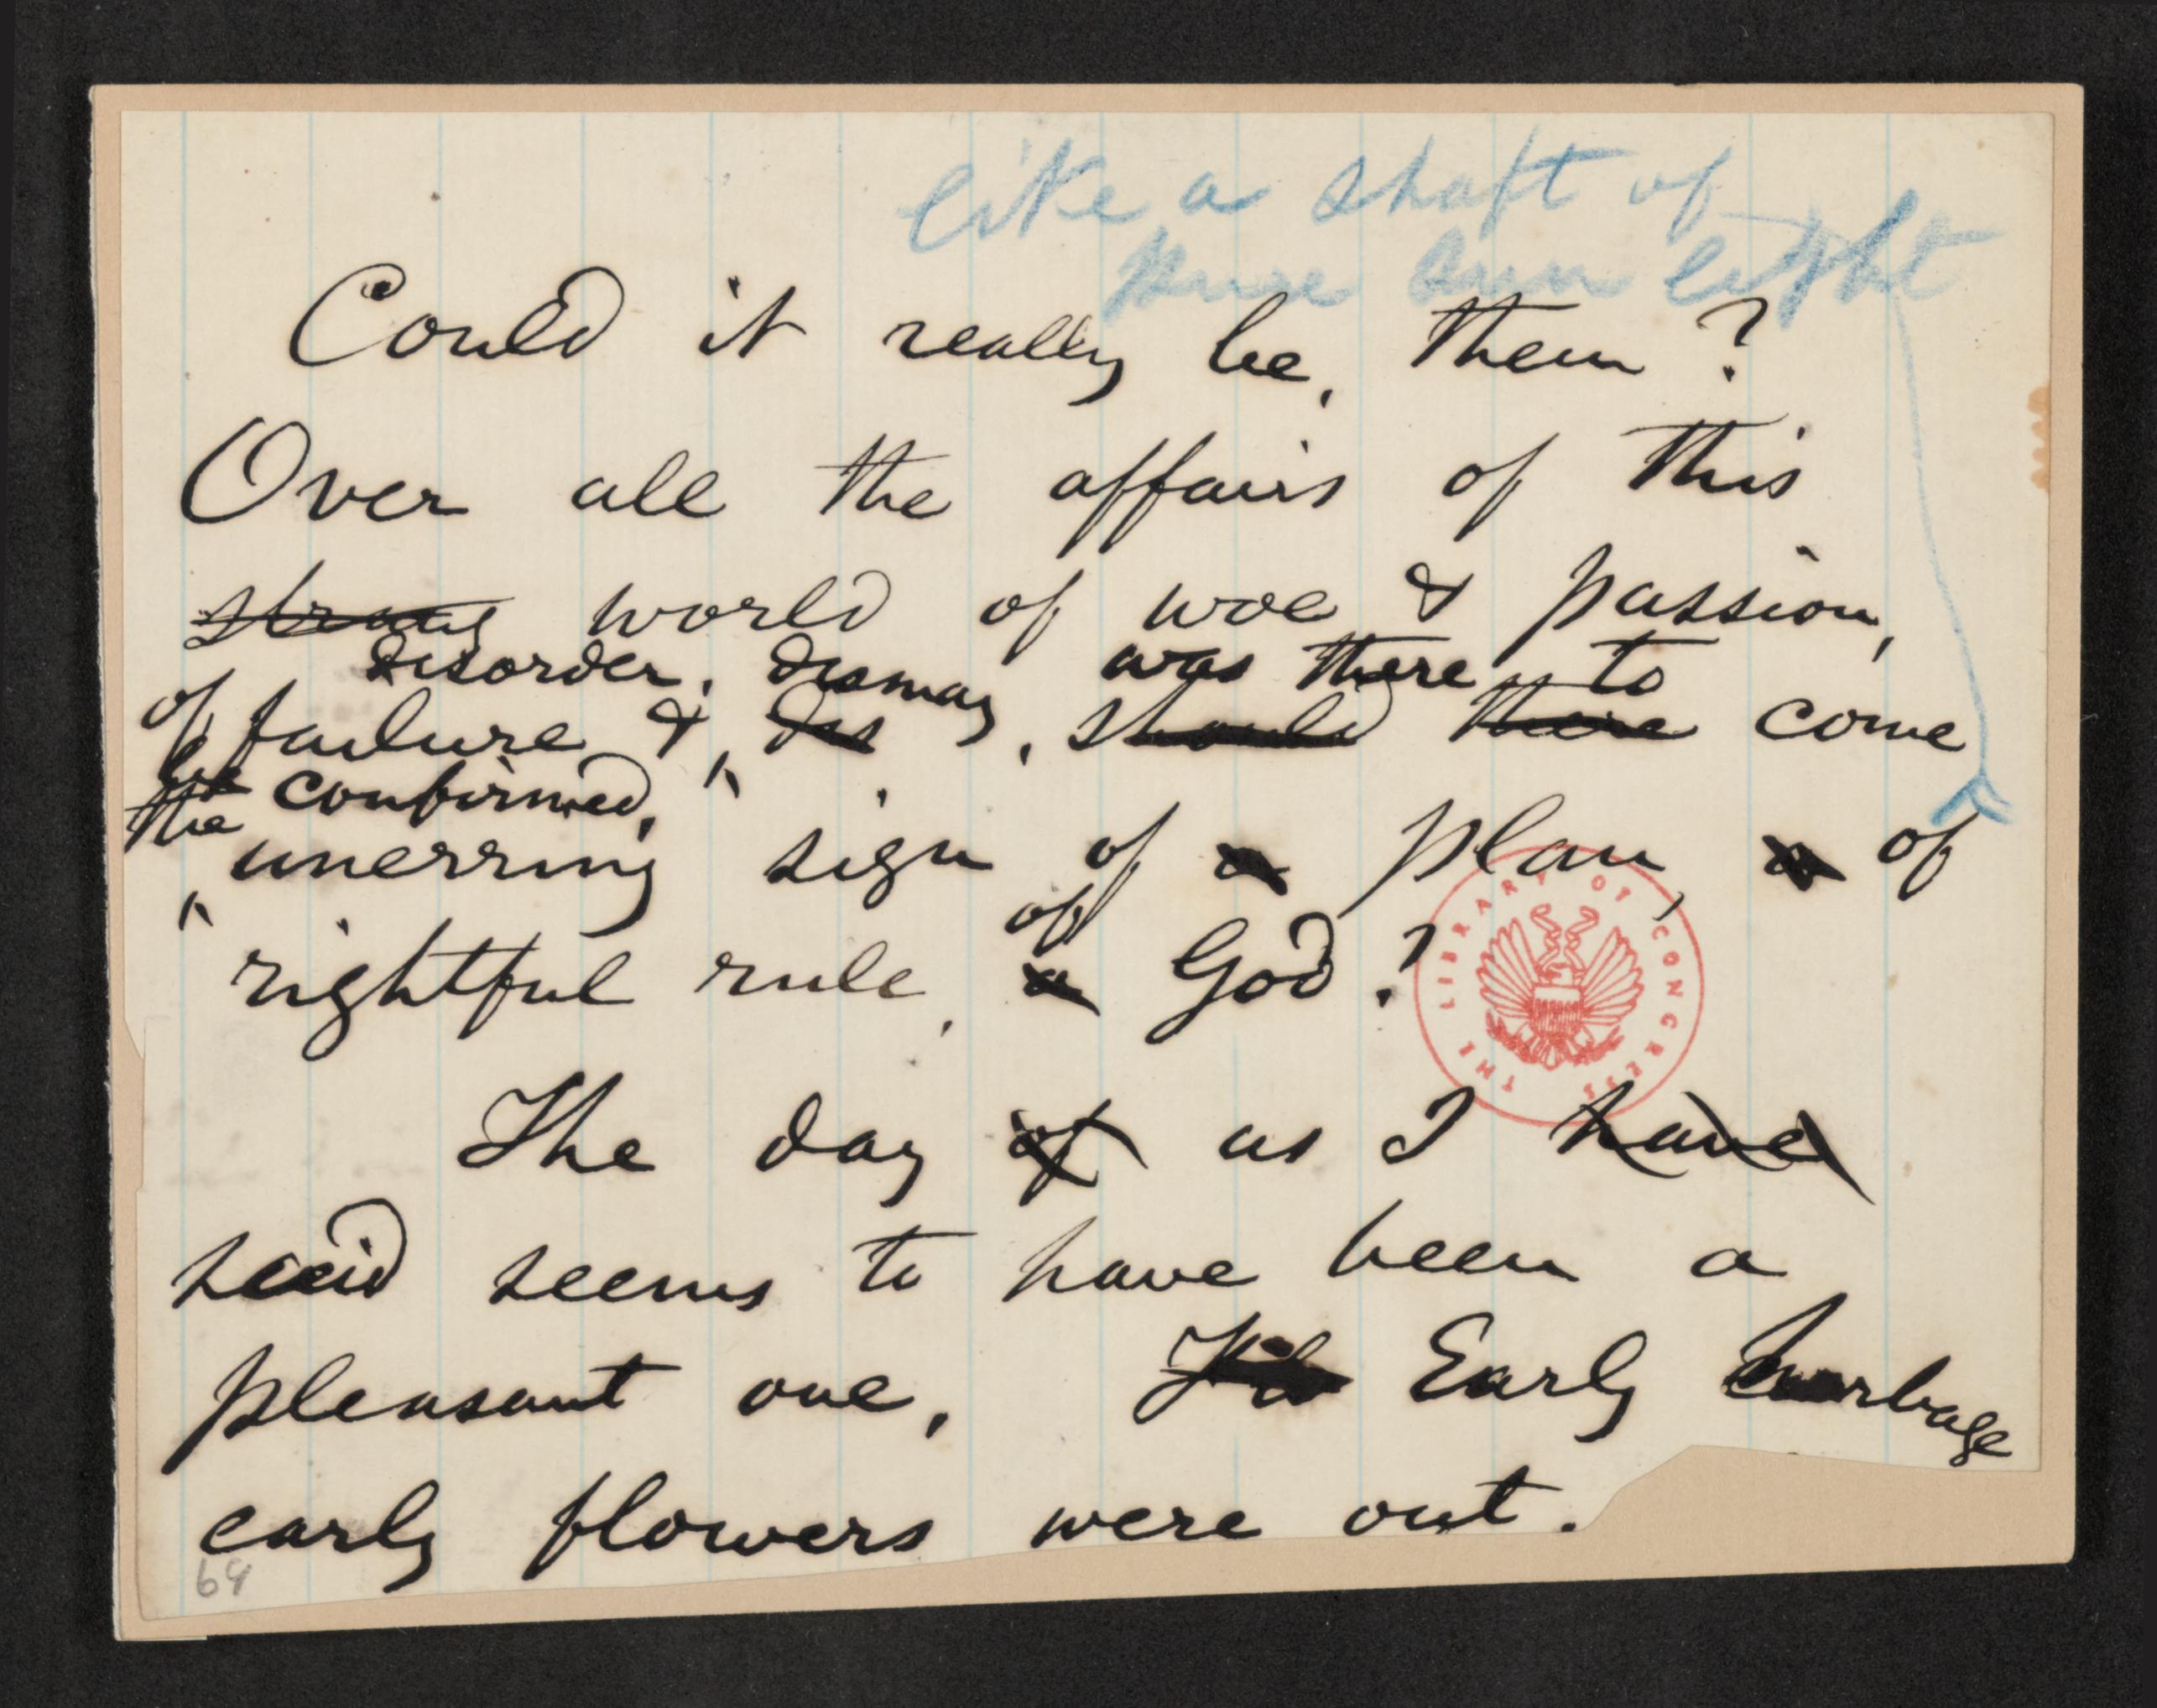 like a shaft of
pure sun light
Could it really be, then?
Over all the affairs of this
strong world of woe & passion,
disorder, dismay, was there to
of failure & dis , should there come
the confirmed,
unerring sign of a plan, a of
of
rightful rule, a God?
The day of as I have
said seems to have been a
pleasant one, Early herbage
early flowers were out.
64
THE LIBRARY OF CONGRESS